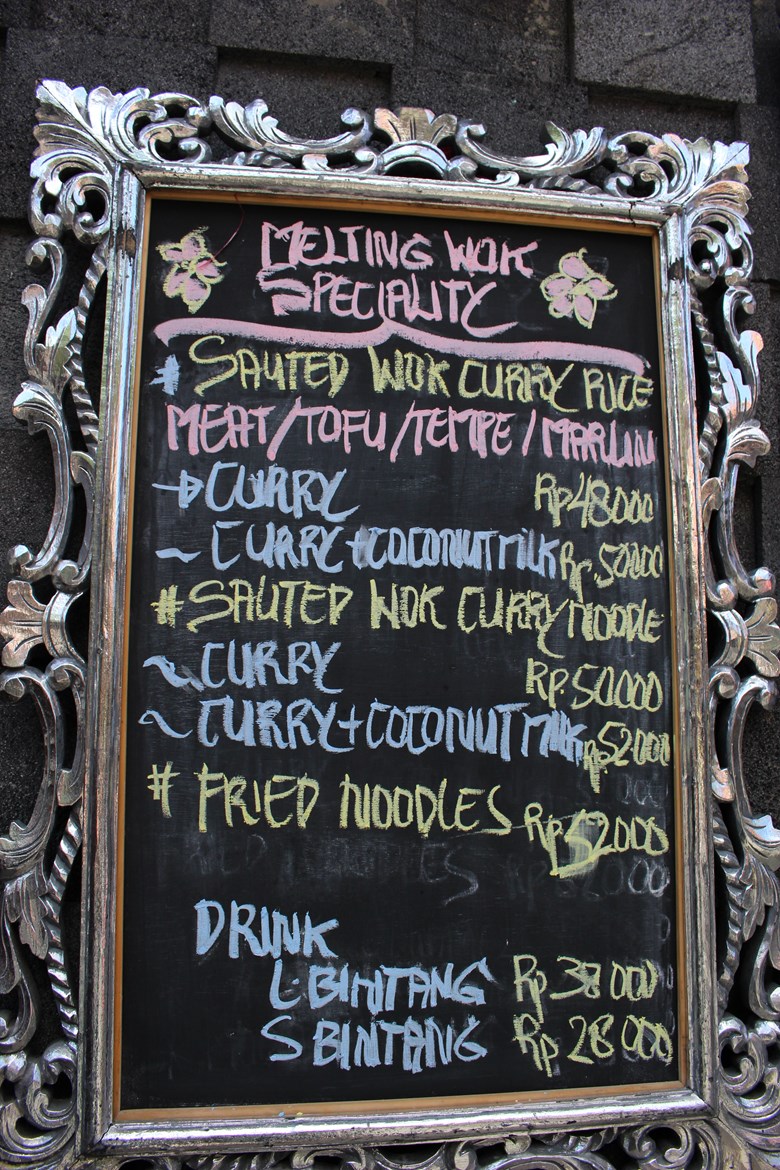 MELTING WOK
SPECIALITY
# SAUTED WOK CURRY RICE
MEAT/TOFU/TEMPE/MARLIN
→ CURRY Rp48000
~ CURRY+COCONUT MILK Rp.50000
# SAUTED WOK CURRY NOODLE
~ CURRY RP.50.000
~ CURRY+COCONUT MILK Rp52000
# FRIED NOODLES Rp52000
DRINK
L.BINTANG Rp 38 000
S BINTANG Rp 28 000